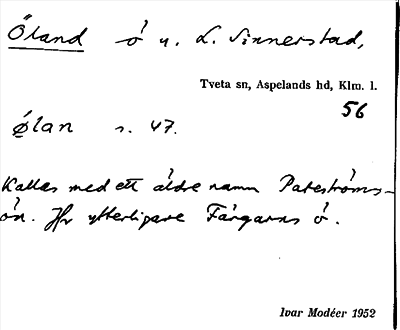 Öland ö u. L. Sinnerstad,
Tveta sn, Aspelands hd, Klm. l.
56
Ølan s. 47.
Kallas med ett äldre namn Pateströms-
ön. Hr ytterligare Färgarns ö.
Ivar Modéer 1952